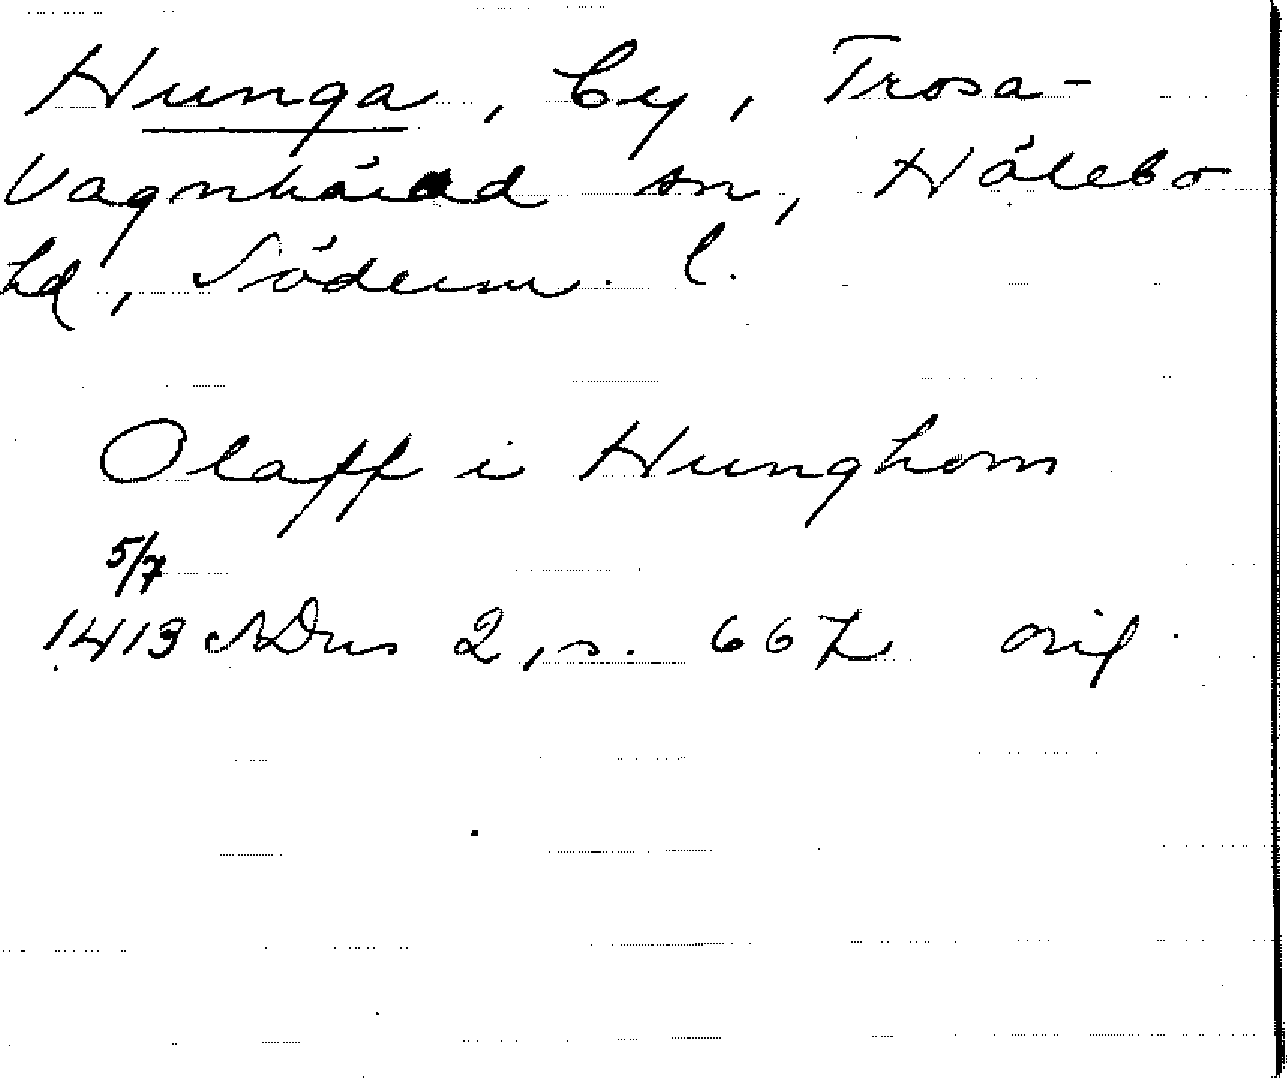 Hunga, by, Trosa-
Vagnhärad sn, Hölebo
hd, Söderm. l.
Olaff i Hunghom
5/7
1413 NDns 2, s. 667 orig.